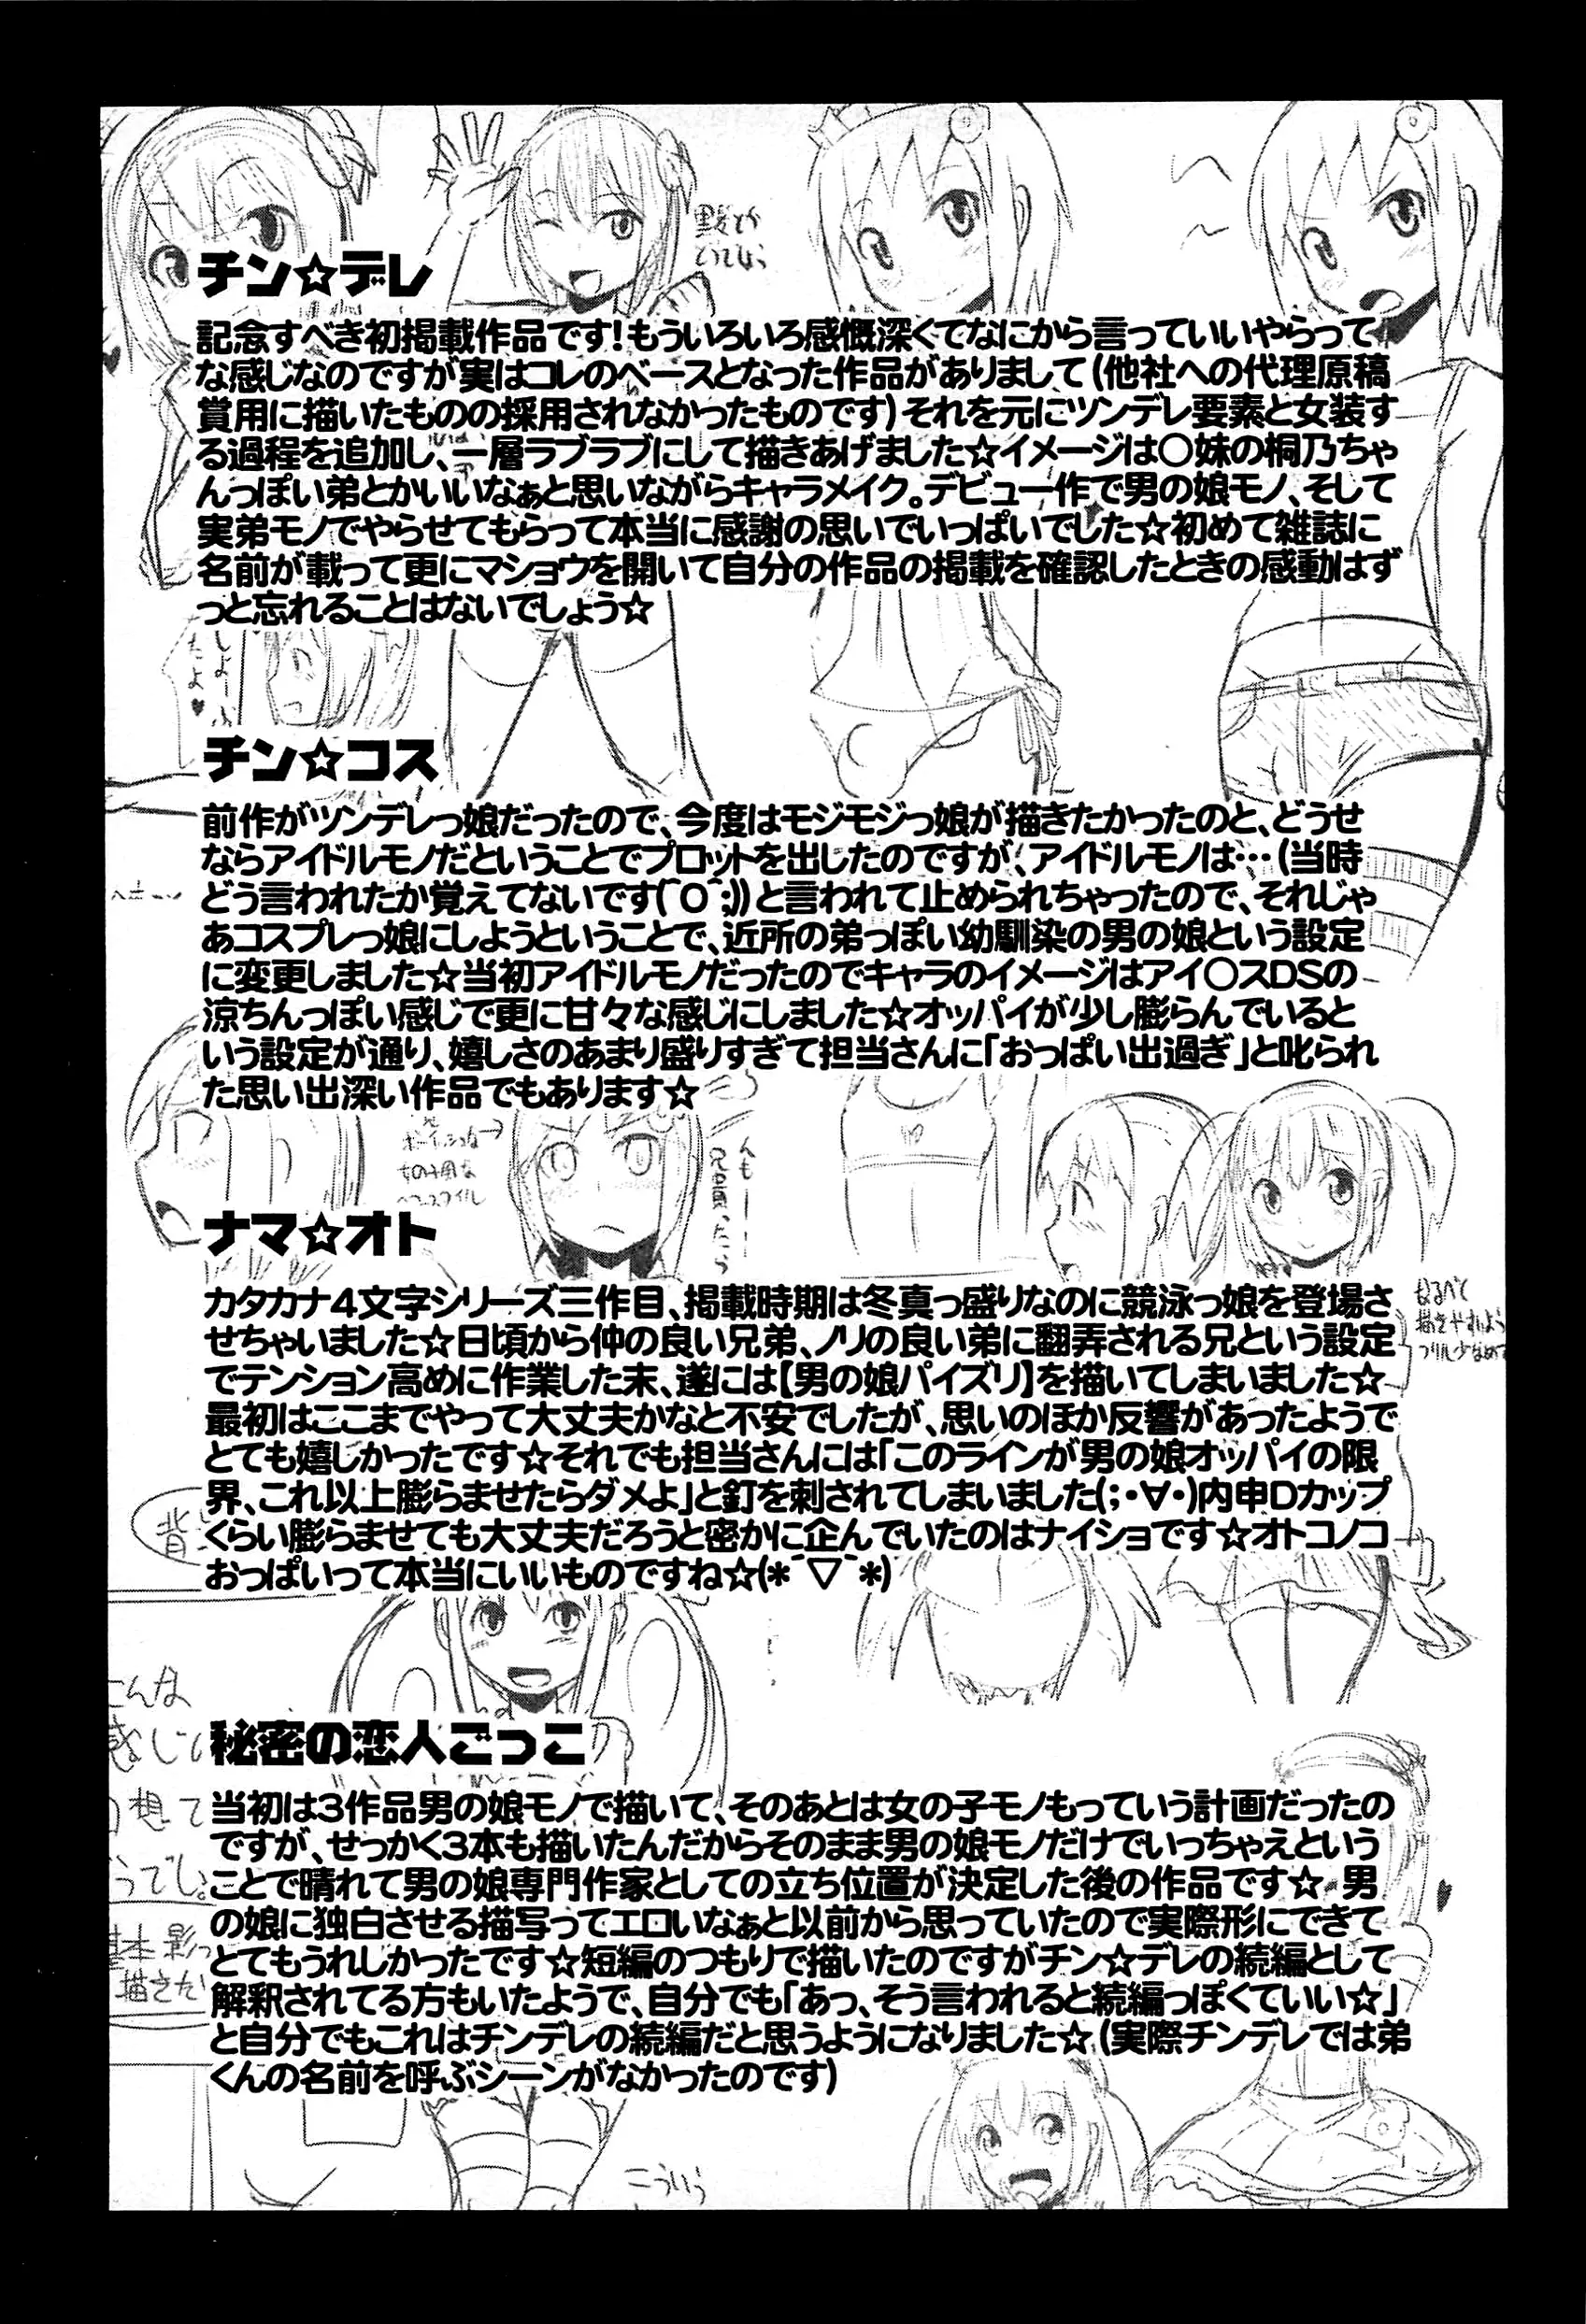 チン☆デレ
記念すべき初掲載作品です！もういろいろ感慨深くてなにから言っていいやらって
な感じなのですが実はコレのベースとなった作品がありまして(他社への代理原稿
賞用に描いたものの採用されなかったものです)それを元にツンデレ要素と女装す
る過程を追加し、一層ラブラブにして描きあげました☆イメージは〇妹の桐乃ちゃ
んっぽい弟とかいいなぁと思いながらキャラメイク。デビュー作で男の娘モノ、そして
実弟モノでやらせてもらって本当に感謝の思いでいっぱいでした☆初めて雑誌に
名前が載って更にマショウを開いて自分の作品の掲載を確認したときの感動はず
っと忘れることはないでしょう☆
チン☆コス
前作がツンデレっ娘だったので、今度はモジモジっ娘が描きたかったのと、どうせ
ならアイドルモノだということでプロットを出したのですが、アイドルモノは…(当時
どう言われたか覚えてないです(^O^;))と言われて止められちゃったので、それじゃ
あコスプレっ娘にしようということで、近所の弟っぽい幼馴染の男の娘という設定
に変更しました☆当初アイドルモノだったのでキャラのイメージはアイ〇スDSの
涼ちんっぽい感じで更に甘々な感じにしました☆オッパイが少し膨らんでいると
いう設定が通り、嬉しさのあまり盛りすぎて担当さんに「おっぱい出過ぎ」と叱られ
た思い出深い作品でもあります☆
ナマ☆オト
カタカナ4文字シリーズ三作目、掲載時期は冬真っ盛りなのに競泳っ娘を登場さ
せちゃいました☆日頃から仲の良い兄弟、ノリの良い弟に翻弄される兄という設定
でテンション高めに作業した末、遂には【男の娘パイズリ】を描いてしまいました☆
最初はここまでやって大丈夫かなと不安でしたが、思いのほか反響があったようで
とても嬉しかったです☆それでも担当さんには「このラインが男の娘オッパイの限
界、これ以上膨らませたらダメよ」と釘を刺されてしまいました(;・∀・)内申Dカップ
くらい膨らませても大丈夫だろうと密かに企んでいたのはナイショです☆オトコノコ
おっぱいって本当にいいものですね☆(*´▽`*)
秘密の恋人ごっこ
当初は3作品男の娘モノで描いて、そのあとは女の子モノもっていう計画だったの
ですが、せっかく3本も描いたんだからそのまま男の娘モノだけでいっちゃえという
ことで晴れて男の娘専門作家としての立ち位置が決定した後の作品です☆ 男
の娘に独白させる描写ってエロいなぁと以前から思っていたので実際形にできて
とてもうれしかったです☆短編のつもりで描いたのですがチン☆デレの続編として
解釈されてる方もいたようで、自分でも「あっ、そう言われると続編っぽくていい☆」
と自分でもこれはチンデレの続編だと思うようになりました☆(実際チンデレでは弟
くんの名前を呼ぶシーンがなかったのです)
こんな
想て
描きた
こういう